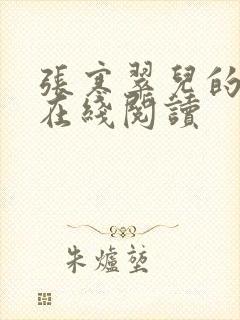 張寒翠兒的
在綫閱讀
朱爐堃